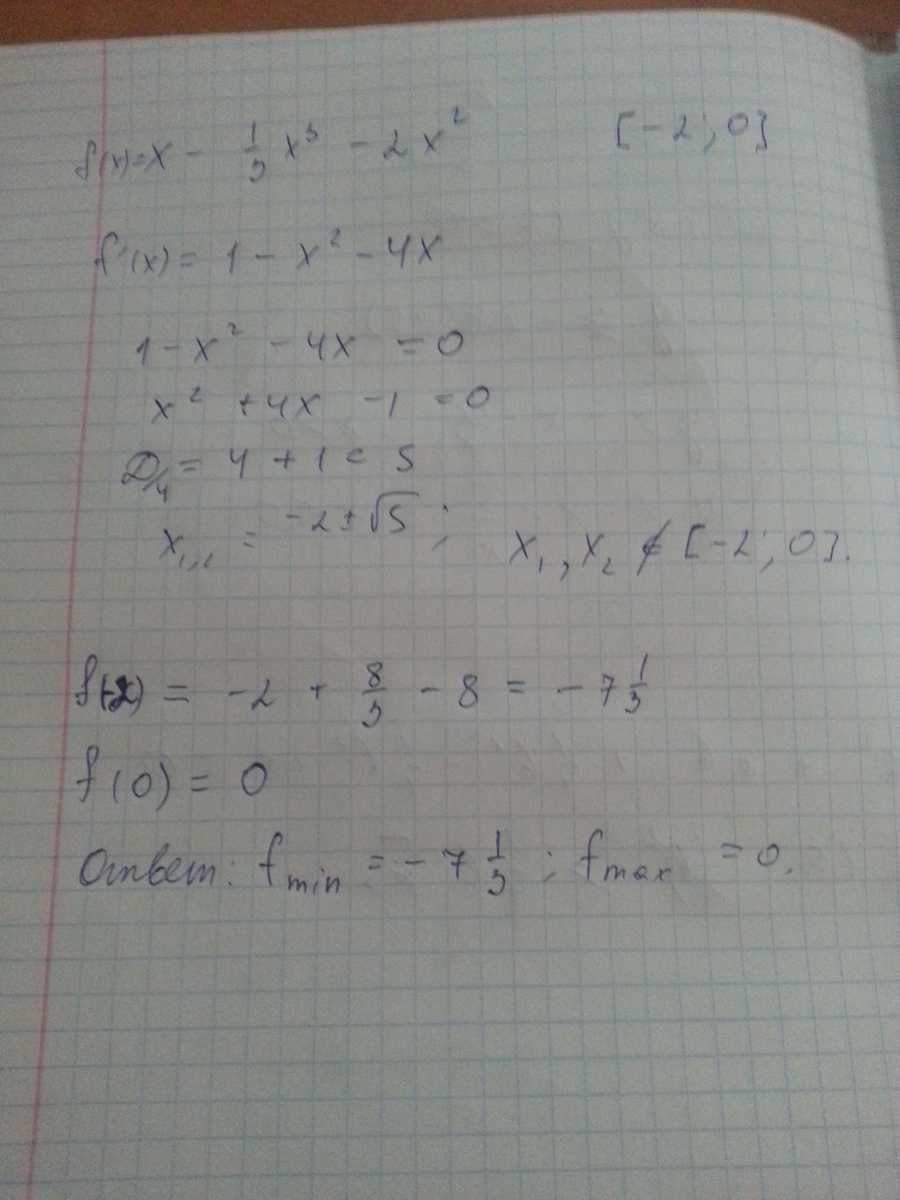 f(x)=x - 1/3 x³ - 2x² [-2; 0]
f'(x) = 1 - x² - 4x
1 - x² - 4x = 0
x² + 4x - 1 = 0
D/4 = 4 + 1 = 5
x₁,₂ = -2 ± √5; x₁, x₂ ∉ [-2; 0].
f(-2) = -2 + 8/3 - 8 = -7 1/3
f(0) = 0
Ответ: fmin = -7 1/3; fmax = 0.